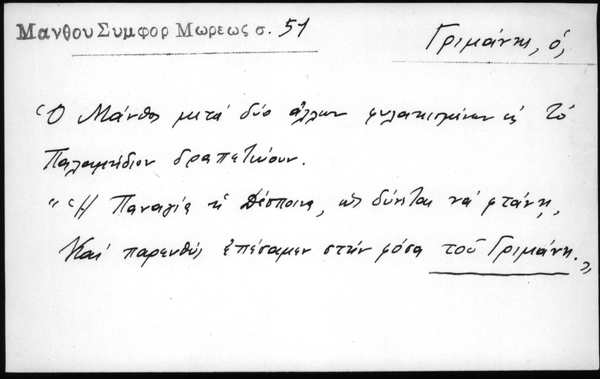 Μανθου Συμφορ Μωρεως σ. 51
Γριμάνης, ὁ,
Ὁ Μάνθος μετά δύο ἄλλων φυλακισμένων εἰς τό
Παλαμήδιον δραπετεύουν.
"Ἡ Παναγία ἡ Δέσποινα, ὡς δύνεται νά φτάνῃ,
Καί παρευθύς ἐπέσαμεν στήν φόσα τοῦ Γριμάνη."